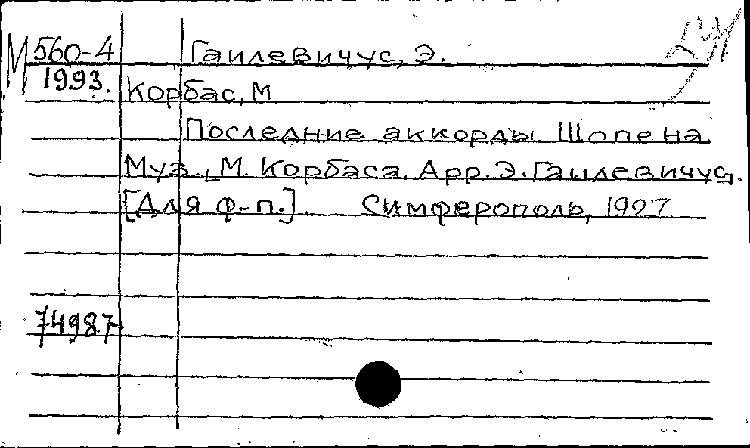 М 560-4 Гаилевичус, Э.
1993. Корбас, М
Последние аккорды Шопена
Муз. М. Корбаса. Арр. Э. Гаилевичус.
[Для ф-п.] Симферополь, 1927
74987